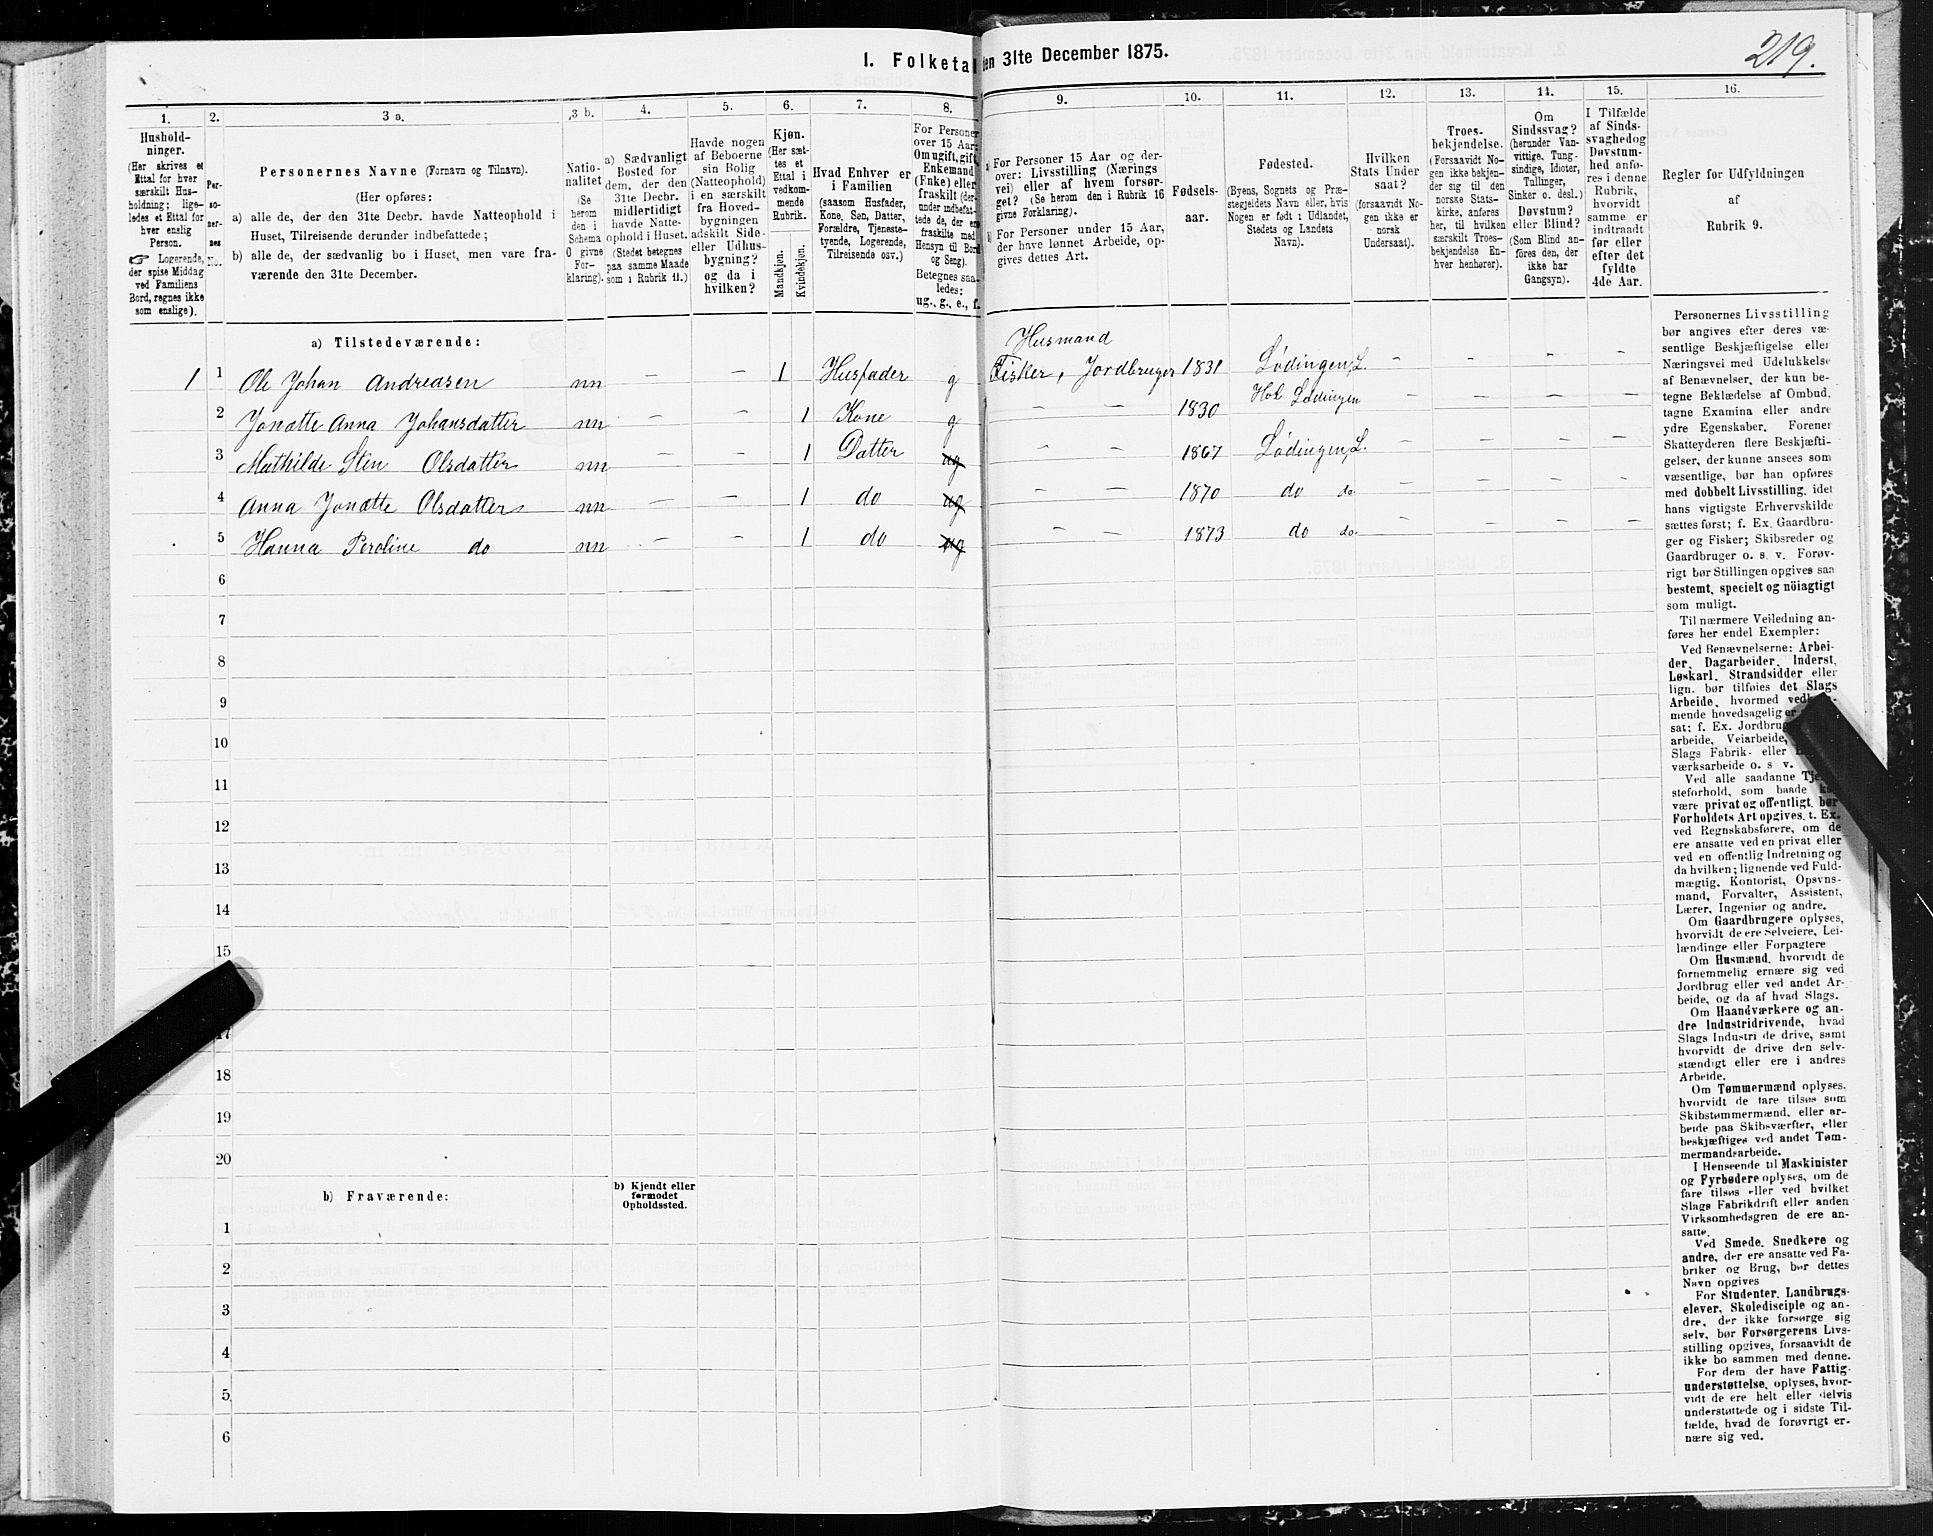 219.
1. Folketal den 31te December 1875.
1.
2.
3 a.
3 b.
4.
5.
6.
7.
8.
9.
10.
11.
12.
13.
14.
15.
16.
Hushold-
ninger.
(Her skrives et
Ettal for hver
særskilt Hus-
holdning; lige-
ledes et Ettal for
hver enslig
Person.
☞ Logerende,
der spise Middag
ved Familiens
Bord, regnes ikke
som enslige).
Per-
so-
ner-
nes
No.
Personernes Navne (Fornavn og Tilnavn).
(Her opføres:
a) alle de, der den 31te Decbr. havde Natteophold i
Huset, Tilreisende derunder indbefattede;
b) alle de, der sædvanlig bo i Huset, men vare fra-
værende den 31te December.
Natio-
nalitet
(Se
herom
den i
Schema
O givne
For-
klaring).
a) Sædvanligt
Bosted for
dem, der den
31te Decbr.
midlertidigt
havde Natte-
ophold i Huset.
(Stedet betegnes
paa samme Maade
som i Rubrik 11.)
Havde nogen
af Beboerne
sin Bolig
(Natteophold)
i en særskilt
fra Hoved-
bygningen
adskilt Side-
eller Udhus-
bygning?
og da i
hvilken?
Kjøn.
(Her sæt-
tes et
Ettal i
vedkom-
mende
Rubrik.
Mandkjøn.
Kvindekjøn.
Hvad Enhver er
i Familien
(saasom Husfader,
Kone, Søn, Datter,
Forældre, Tjeneste-
tyende, Logerende,
Tilreisende osv.)
For Personer
over 15 Aar:
Om ugift, gift,
Enkemand
(Enke) eller
fraskilt (der-
under indbefat-
tede de, der ere
fraskilte med
Hensyn til Bord
og Seng).
Betegnes saa-
ledes:
ug., g., e., f.
a) For Personer 15 Aar og der-
over: Livsstilling (Nærings
vei) eller af hvem forsør-
get? (Se herom den i Rubrik 16
givne Forklaring).
b) For Personer under 15 Aar,
der have lønnet Arbeide, op-
gives dettes Art.
Fødsels-
aar.
Fødested.
(Byens, Sognets og Præ-
stegjeldets Navn eller, hvis
Nogen er født i Udlandet,
Stedets og Landets
Navn).
Hvilken
Stats Under
saat?
(forsaavidt No-
gen ikke er
norsk
Undersaat).
Troes-
bekjendelse.
(Forsaavidt No-
gen ikke bekjen-
der sig til den
norske Stats-
kirke, anføres
her, til hvilken
særskilt Troes-
bekjendelse En-
hver henhører).
Om
Sindssvag?
(herunder Van-
vittige, Tung-
sindige, Idioter,
Tullinger,
Sinker o. desl.)
Døvstum?
eller Blind?
(Som Blind an-
føres den, der
ikke har
Gangsyn).
I Tilfælde
af Sinds-
svaghedog
Døvstum-
hed anfø-
res i denne
Rubrik,
hvorvidt
samme er
indtraadt
før eller
efter det
fyldte
4de Aar.
Regler for Udfyldningen
af
Rubrik 9.
a) Tilstedeværende:
Husmand
1 1 Ole Johan Andreasen nn — — 1 Husfader g Fisker, Jordbruger 1831 Lødingen, L. - - - -
2 Jonette Anna Johansdatter nn — — 1 Kone g — — 1830 Hol Lødingen - - - -
3 Mathilde Sten Olsdatter nn — — 1 Datter ug - - 1867 Lødingen, L. - - - -
4 Anna Jonette Olsdatter nn — — 1 do ug — — 1870 do do - - - -
5 Hanna Peroline do nn — — 1 do ug - - 1873 do do - - - -
6
7
8
9
10
11
12
13
14
15
17
18
19
20
b) Fraværende:
b) Kjendt eller
formodet
Opholdssted.
1
2
3
4
5
6
Personernes Livsstilling
bør angives efter deres væ-
sentlige Beskjæftigelse eller
Næringsvei med Udelukkelse
af Benævnelser, der kun be-
tegne Beklædelse af Ombud,
tagne Examina eller andre
ydre Egenskaber. Forener
Skatteyderen flere Beskjæfti-
gelser, der kunne ansees som
væsentlige, bør han opføres
med dobbelt Livsstilling, idet
hans vigtigste Erhvervskilde
sættes først; f. Ex. Gaardbru-
ger og Fisker; Skibsreder og
Gaardbruger o. s. v. Forøv-
rigt bør Stillingen opgives saa
bestemt, specielt og nöiagtigt
som muligt.
Til nærmere Veiledning an-
føres her endel Exempler:
Ved Benævnelserne: Arbei-
der, Dagarbeider, Inderst,
Løskarl, Strandsidder eller
lign. bør tilføies det Slags
Arbeide, hvormed vedkom-
mende hovedsagelig er
sat; f. Ex. Jordbrug
arbeide, Veiarbeide,
Slags Fabrik- eller
værksarbeide o. s. v.
Ved alle saadanne Tje-
steforhold, som baade
være privat og offentligt, bør
Forholdets Art opgives, t. Ex.
ved Regnskabsførere, om de
ere ansatte ved en privat eller
ved en offentlig Indretning og
da hvilken; lignende ved Fuld-
mægtig, Kontorist, Opsyns-
mand, Forvalter, Assistent,
Lærer, Ingeniør og andre.
Om Gaardbrugere oplyses,
hvorvidt de ere Selveiere, Lei-
lændinge eller Forpagtere
Om Husmænd, hvorvidt de
fornemmelig ernære sig ved
Jordbrug eller ved andet Ar-
beide, og da af hvad Slags.
Om Haandværkere og an-
dre Industridrivende, hvad
Slags Industri de drive, samt
hvorvidt de drive den selv-
stændigt eller ere i andres
Arbeide.
Om Tømmermænd oplyses,
hvorvidt de fare tilsøs som
Skibstømmermænd, eller ar-
beide paa Skibsværfter, eller
beskjæftiges ved andet Tøm-
mermandsarbeide.
I Henseende til Maskinister
og Fyrbødere oplyses, om de
fare tilsøs eller ved hvilket
Slags Fabrikdrift eller anden
Virksomhedsgren de ere an-
satte.
Ved Smede, Snedkere og
andre, der ere ansatte ved Fa-
briker og Brug, bør dettes
Navn opgives
For Studenter, Landbrugs-
elever, Skoledisciple og an-
dre, der ikke forsørge sig
selv, bør Forsørgerens Livs-
stilling opgives, forsaavidt de
ikke bo sammen med denne.
For dem der have Fattig-
understøttelse, oplyses, hvor-
vidt de ere helt eller delvis
understøttede og i sidste Til-
fælde, hvad de forøvrigt er-
nære sig ved.